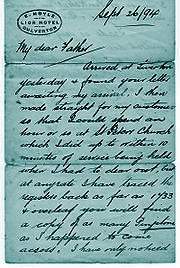 E. HOYLE
LION HOTEL
DULVERTON
Sept 26/94
My dear Father
Arrived at Dulverton
yesterday & found your letter
awaiting my arrival. I then
made straight for my customer
so that I could spend an
hour or so at St Peter Church
which I did up to within 10
minutes of service being held
when I had to clear out, but
at any rate I have traced the
registers back as far as 1733
& overleaf you will find
a copy of as many
as I happened to come
across. I have only noticed